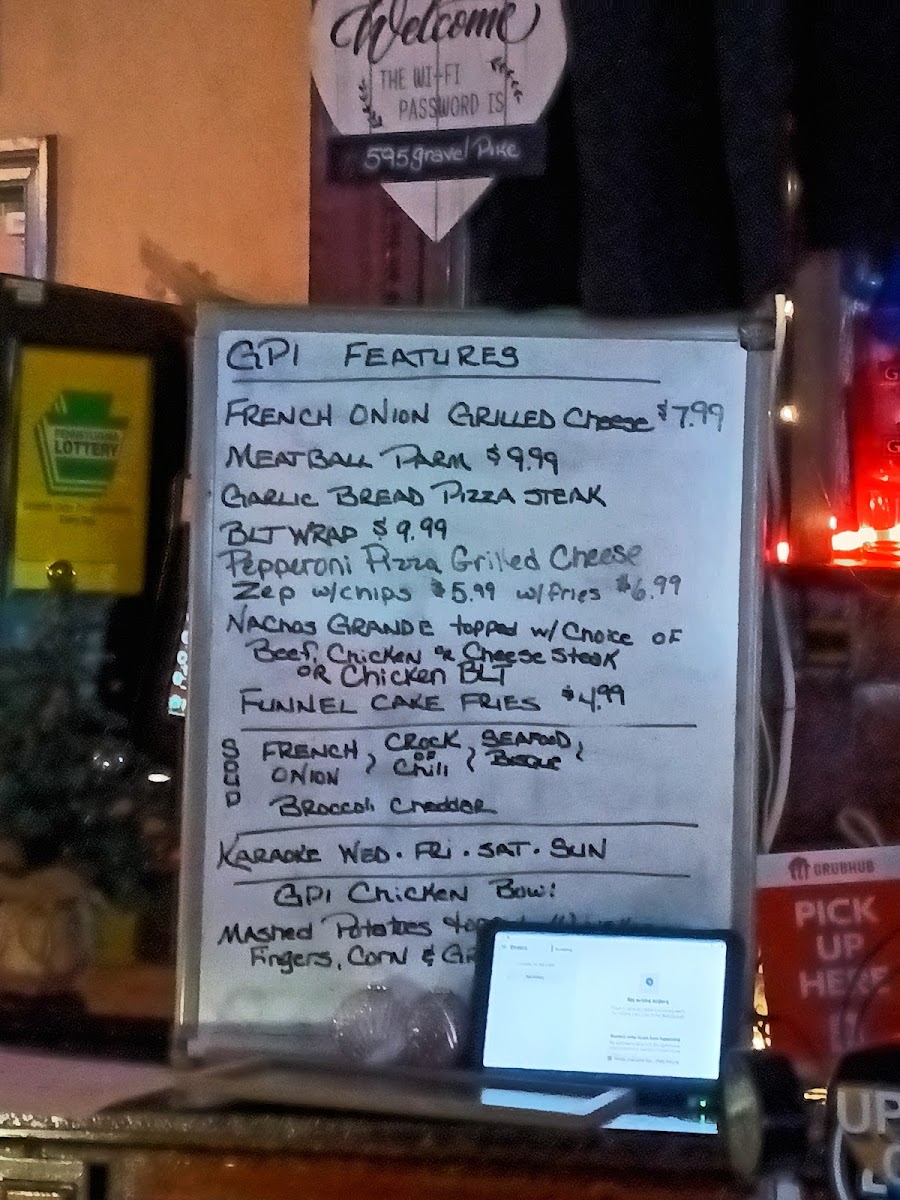 Welcome
THE WI-FI
PASSWORD IS
595gravel Pike
PENNSYLVANIA
LOTTERY
GPI FEATURES
FRENCH ONION GRILLED Cheese $7.99
MEATBALL PARM $9.99
GARLIC BREAD PIZZA STEAK
BLT WRAP $9.99
Pepperoni Pizza Grilled Cheese
Zep w/chips $5.99 w/fries $6.99
NACHOS GRANDE topped w/ Choice OF
Beef, Chicken OR Cheese Steak
OR Chicken BLT
FUNNEL CAKE FRIES $4.99
SOUP
FRENCH ONION, CROCK OF Chili, SEAFOOD BISQUE,
Broccoli Cheddar
KARAOKE WED. FRI. SAT. SUN
GPI Chicken Bowl
MAshed Potatoes
Fingers, Corn &
GRUBHUB
PICK
UP
HERE
UP